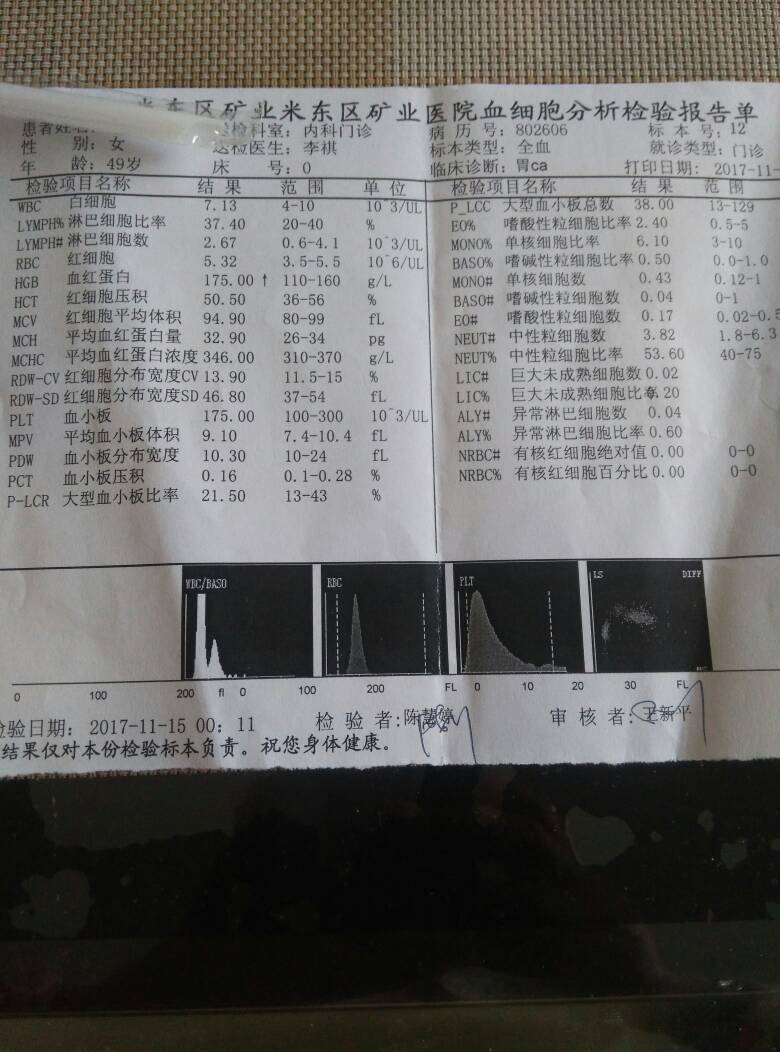 米东区矿业米东区矿业医院血细胞分析检验报告单
患者姓名: 送检科室: 内科门诊 病 历 号: 802606 标 本 号: 12
性 别: 女 送检医生: 李祺 标本类型: 全血 就诊类型: 门诊
年 龄: 49岁 床 号: 0 临床诊断: 胃ca 打印日期: 2017-11-
检验项目名称 结 果 范 围 单 位
WBC 白细胞 7.13 4-10 10^3/UL
LYMPH% 淋巴细胞比率 37.40 20-40 %
LYMPH# 淋巴细胞数 2.67 0.6-4.1 10^3/UL
RBC 红细胞 5.32 3.5-5.5 10^6/UL
HGB 血红蛋白 175.00 ↑ 110-160 g/L
HCT 红细胞压积 50.50 36-56 %
MCV 红细胞平均体积 94.90 80-99 fL
MCH 平均血红蛋白量 32.90 26-34 pg
MCHC 平均血红蛋白浓度 346.00 310-370 g/L
RDW-CV 红细胞分布宽度CV 13.90 11.5-15 %
RDW-SD 红细胞分布宽度SD 46.80 37-54 fL
PLT 血小板 175.00 100-300 10^3/UL
MPV 平均血小板体积 9.10 7.4-10.4 fL
PDW 血小板分布宽度 10.30 10-24 fL
PCT 血小板压积 0.16 0.1-0.28 %
P-LCR 大型血小板比率 21.50 13-43 %
检验项目名称 结 果 范 围
P_LCC 大型血小板总数 38.00 13-129
EO% 嗜酸性粒细胞比率 2.40 0.5-5
MONO% 单核细胞比率 6.10 3-10
BASO% 嗜碱性粒细胞比率 0.50 0.0-1.0
MONO# 单核细胞数 0.43 0.12-1
BASO# 嗜碱性粒细胞数 0.04 0-1
EO# 嗜酸性粒细胞数 0.17 0.02-0.5
NEUT# 中性粒细胞数 3.82 1.8-6.3
NEUT% 中性粒细胞比率 53.60 40-75
LIC# 巨大未成熟细胞数 0.02
LIC% 巨大未成熟细胞比率 .20
ALY# 异常淋巴细胞数 0.04
ALY% 异常淋巴细胞比率 0.60
NRBC# 有核红细胞绝对值 0.00 0-0
NRBC% 有核红细胞百分比 0.00 0-0
WBC/BASO RBC PLT LS DIFF
0 100 200 fl 0 100 200 FL 0 10 20 30 FL
检验日期: 2017-11-15 00: 11 检 验 者: 陈慧婷 审 核 者: 王新平
结果仅对本份检验标本负责。祝您身体健康。